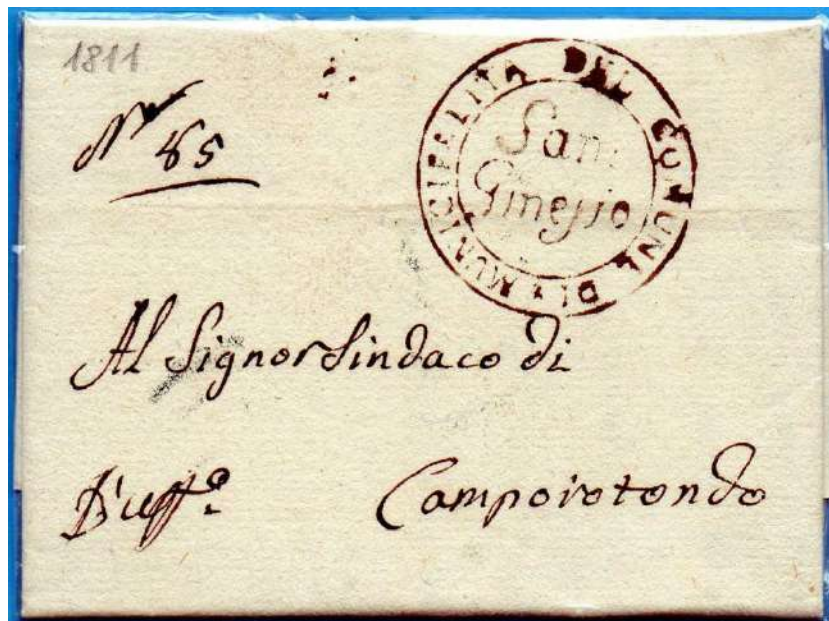 1811
N° 85
MUNICIPALITA DEL COMUNE DI
San
Ginesio
Al Signor Sindaco di
D'uff.o
Camporotondo